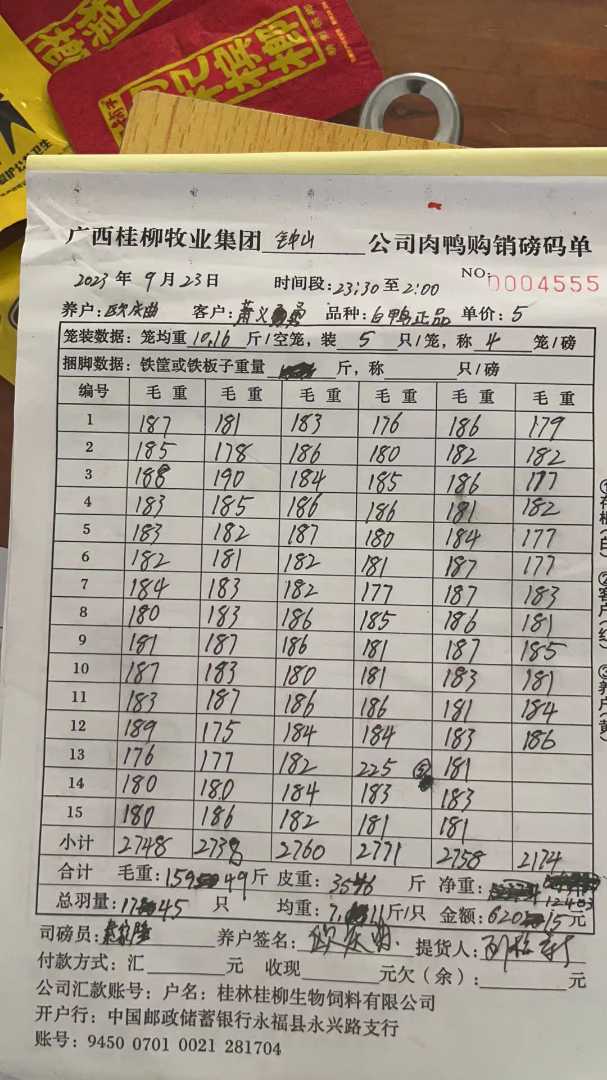 广西桂柳牧业集团 钟山 公司肉鸭购销磅码单
2023年9月23日 时间段:23:30至2:00 NO:0004555
养户:欧成曲 客户:萧义勇 品种:白鸭正品 单价:5
笼装数据:笼均重10.16斤/空笼,装5只/笼,称4笼/磅
捆脚数据:铁筐或铁板子重量 斤,称 只/磅
编号 毛重 毛重 毛重 毛重 毛重 毛重
1 187 181 183 176 186 179
2 185 178 186 180 182 182
3 188 190 184 185 186 177
4 183 185 186 186 181 182
5 183 182 187 180 184 177
6 182 181 182 181 187 177
7 184 183 182 177 187 183
8 180 183 186 185 186 181
9 181 187 186 181 187 185
10 187 183 180 181 183 181
11 183 187 186 186 181 184
12 189 175 184 184 183 186
13 176 177 182 225 ⑤ 181
14 180 180 184 183 183
15 180 186 182 181 181
小计 2748 2738 2760 2771 2758 2174
合计 毛重:15949斤 皮重:3546斤 净重:12403
总羽量:1745只 均重:7.11斤/只 金额:62015元
司磅员: 养户签名: 提货人:
付款方式:汇 元 收现 元欠(余): 元
公司汇款账号:户名:桂林桂柳生物饲料有限公司
开户行:中国邮政储蓄银行永福县永兴路支行
账号:9450 0701 0021 281704
①存根(白) ②客户(红) ③养户(黄)